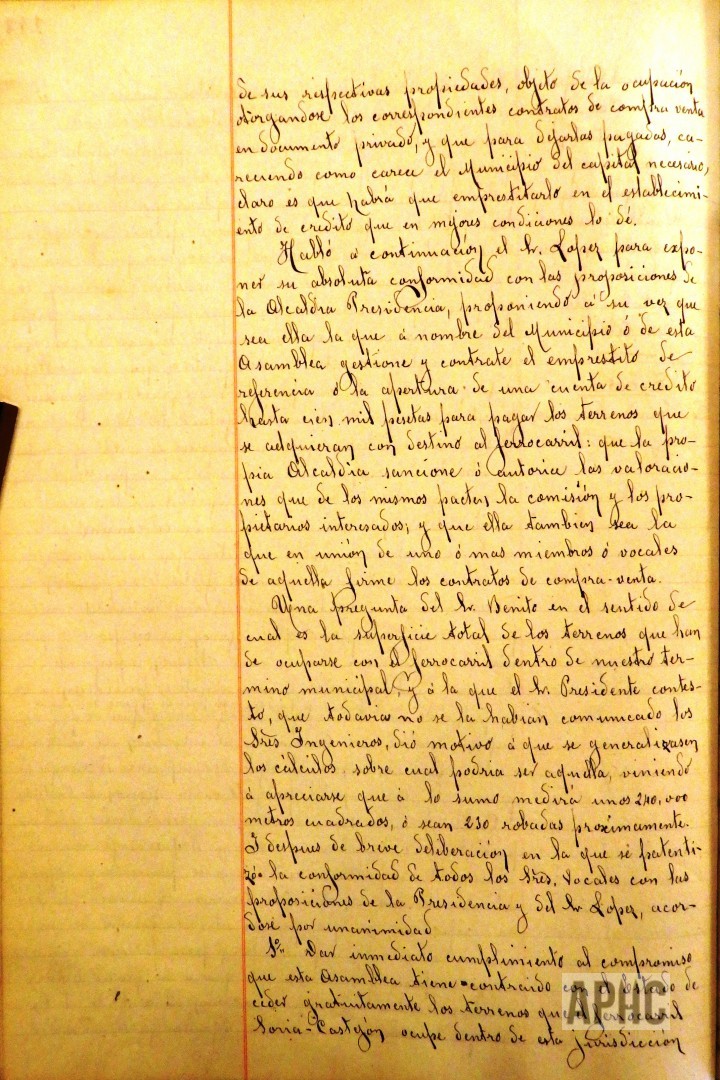 de sus respectivas propiedades, objeto de la ocupación
otorgandose los correspondientes contratos de compra venta
en documento privado, y que para dejarlas pagadas, ca-
reciendo como carece el Municipio del capital necesario,
claro és que habrá que emprestitarlo en el establecimi-
ento de credito que en mejores condiciones lo dé.
Habló á continuación el Sr. Lopez para expo-
ner su absoluta conformidad con las proposiciones de
la Alcaldia Presidencia, proponiendo á su vez que
sea ella la que á nombre del Municipio ó de esta
Asamblea gestione y contrate el emprestito de
referencia ó la apertura de una cuenta de credito
hasta cien mil pesetas para pagar los terrenos que
se adquieran con destino al ferrocarril: que la pro-
pia Alcaldia sancione ó autorice las valoracio-
nes que de los mismos pacten la comisión y los pro-
pietarios interesados; y que ella tambien sea la
que en unión de uno ó mas miembros ó vocales
de aquella firme los contratos de compra-venta.
Una pregunta del Sr. Benito en el sentido de
cual es la superficie total de los terrenos que han
de ocuparse con el ferrocarril dentro de nuestro ter-
mino municipal, y á la que el Sr. Presidente contes-
tó, que todavia no se la habian comunicado los
Sres Ingenieros, dió motivo á que se generalizasen
los cálculos sobre cual podria ser aquella, viniendo
á apreciarse que á lo sumo medirá unos 240,000
metros cuadrados, ó sean 230 robadas proximamente.
I despues de breve deliberación en la que se patenti-
zó la conformidad de todos los Sres. Vocales con las
proposiciones de la Presidencia y del Sr Lopez, acor-
dose por unanimidad
1º Dar inmediato cumplimiento al compromiso
que esta Asamblea tiene contraido con el Estado de
ceder gratuitamente los terrenos que el ferrocarril
Soria-Castejón ocupe dentro de esta jurisdiccion
APHC